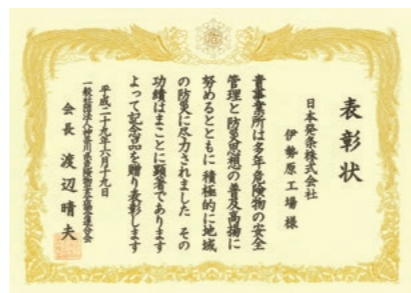 表彰状
日本発条株式会社
伊勢原工場 様
貴事業所は多年危険物の安全
管理と防災思想の普及高揚に
努めるとともに 積極的に地域
の防災に尽力されました その
功績はまことに顕著であります
よって記念品を贈り表彰します
平成二十九年六月十九日
一般社団法人神奈川県危険物安全協会連合会
会長 渡辺晴夫